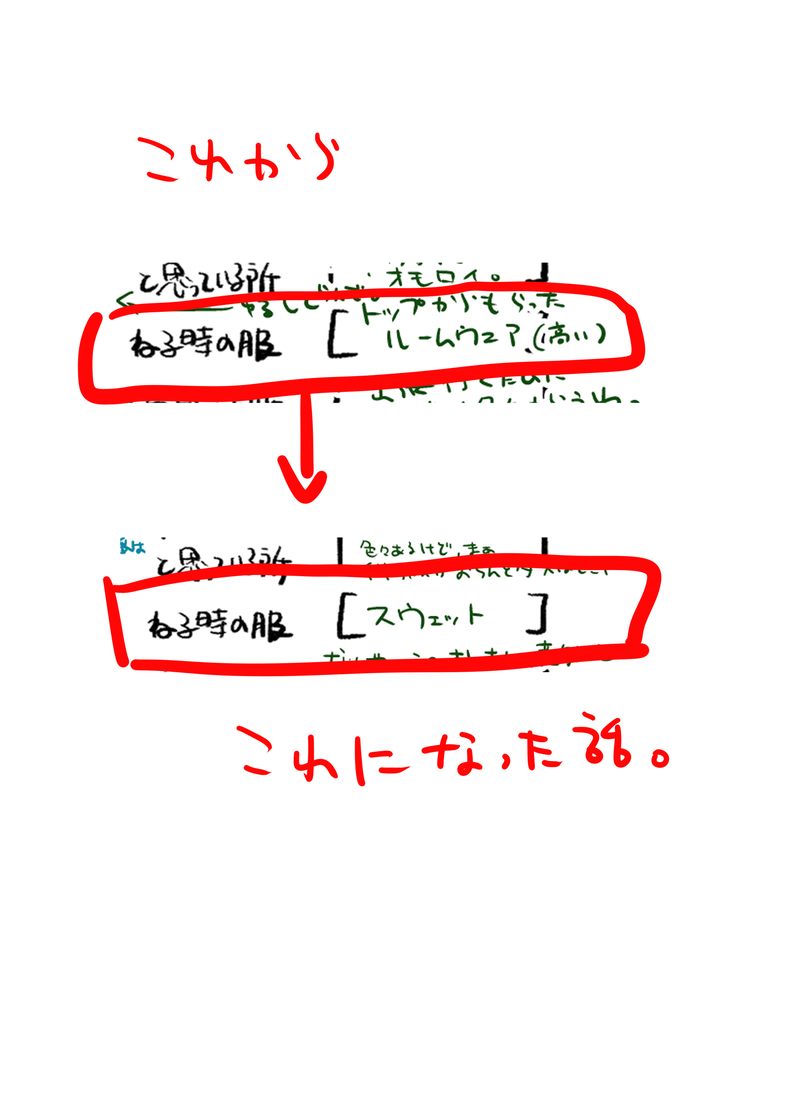 これから
と思っている所
オモロイ。
トップからもらった
ねる時の服 [ ルームウエア(高い)
私は
と思っている所 [ 色々あるけど、まぁ ]
ねる時の服 [ スウェット ]
これになった話。